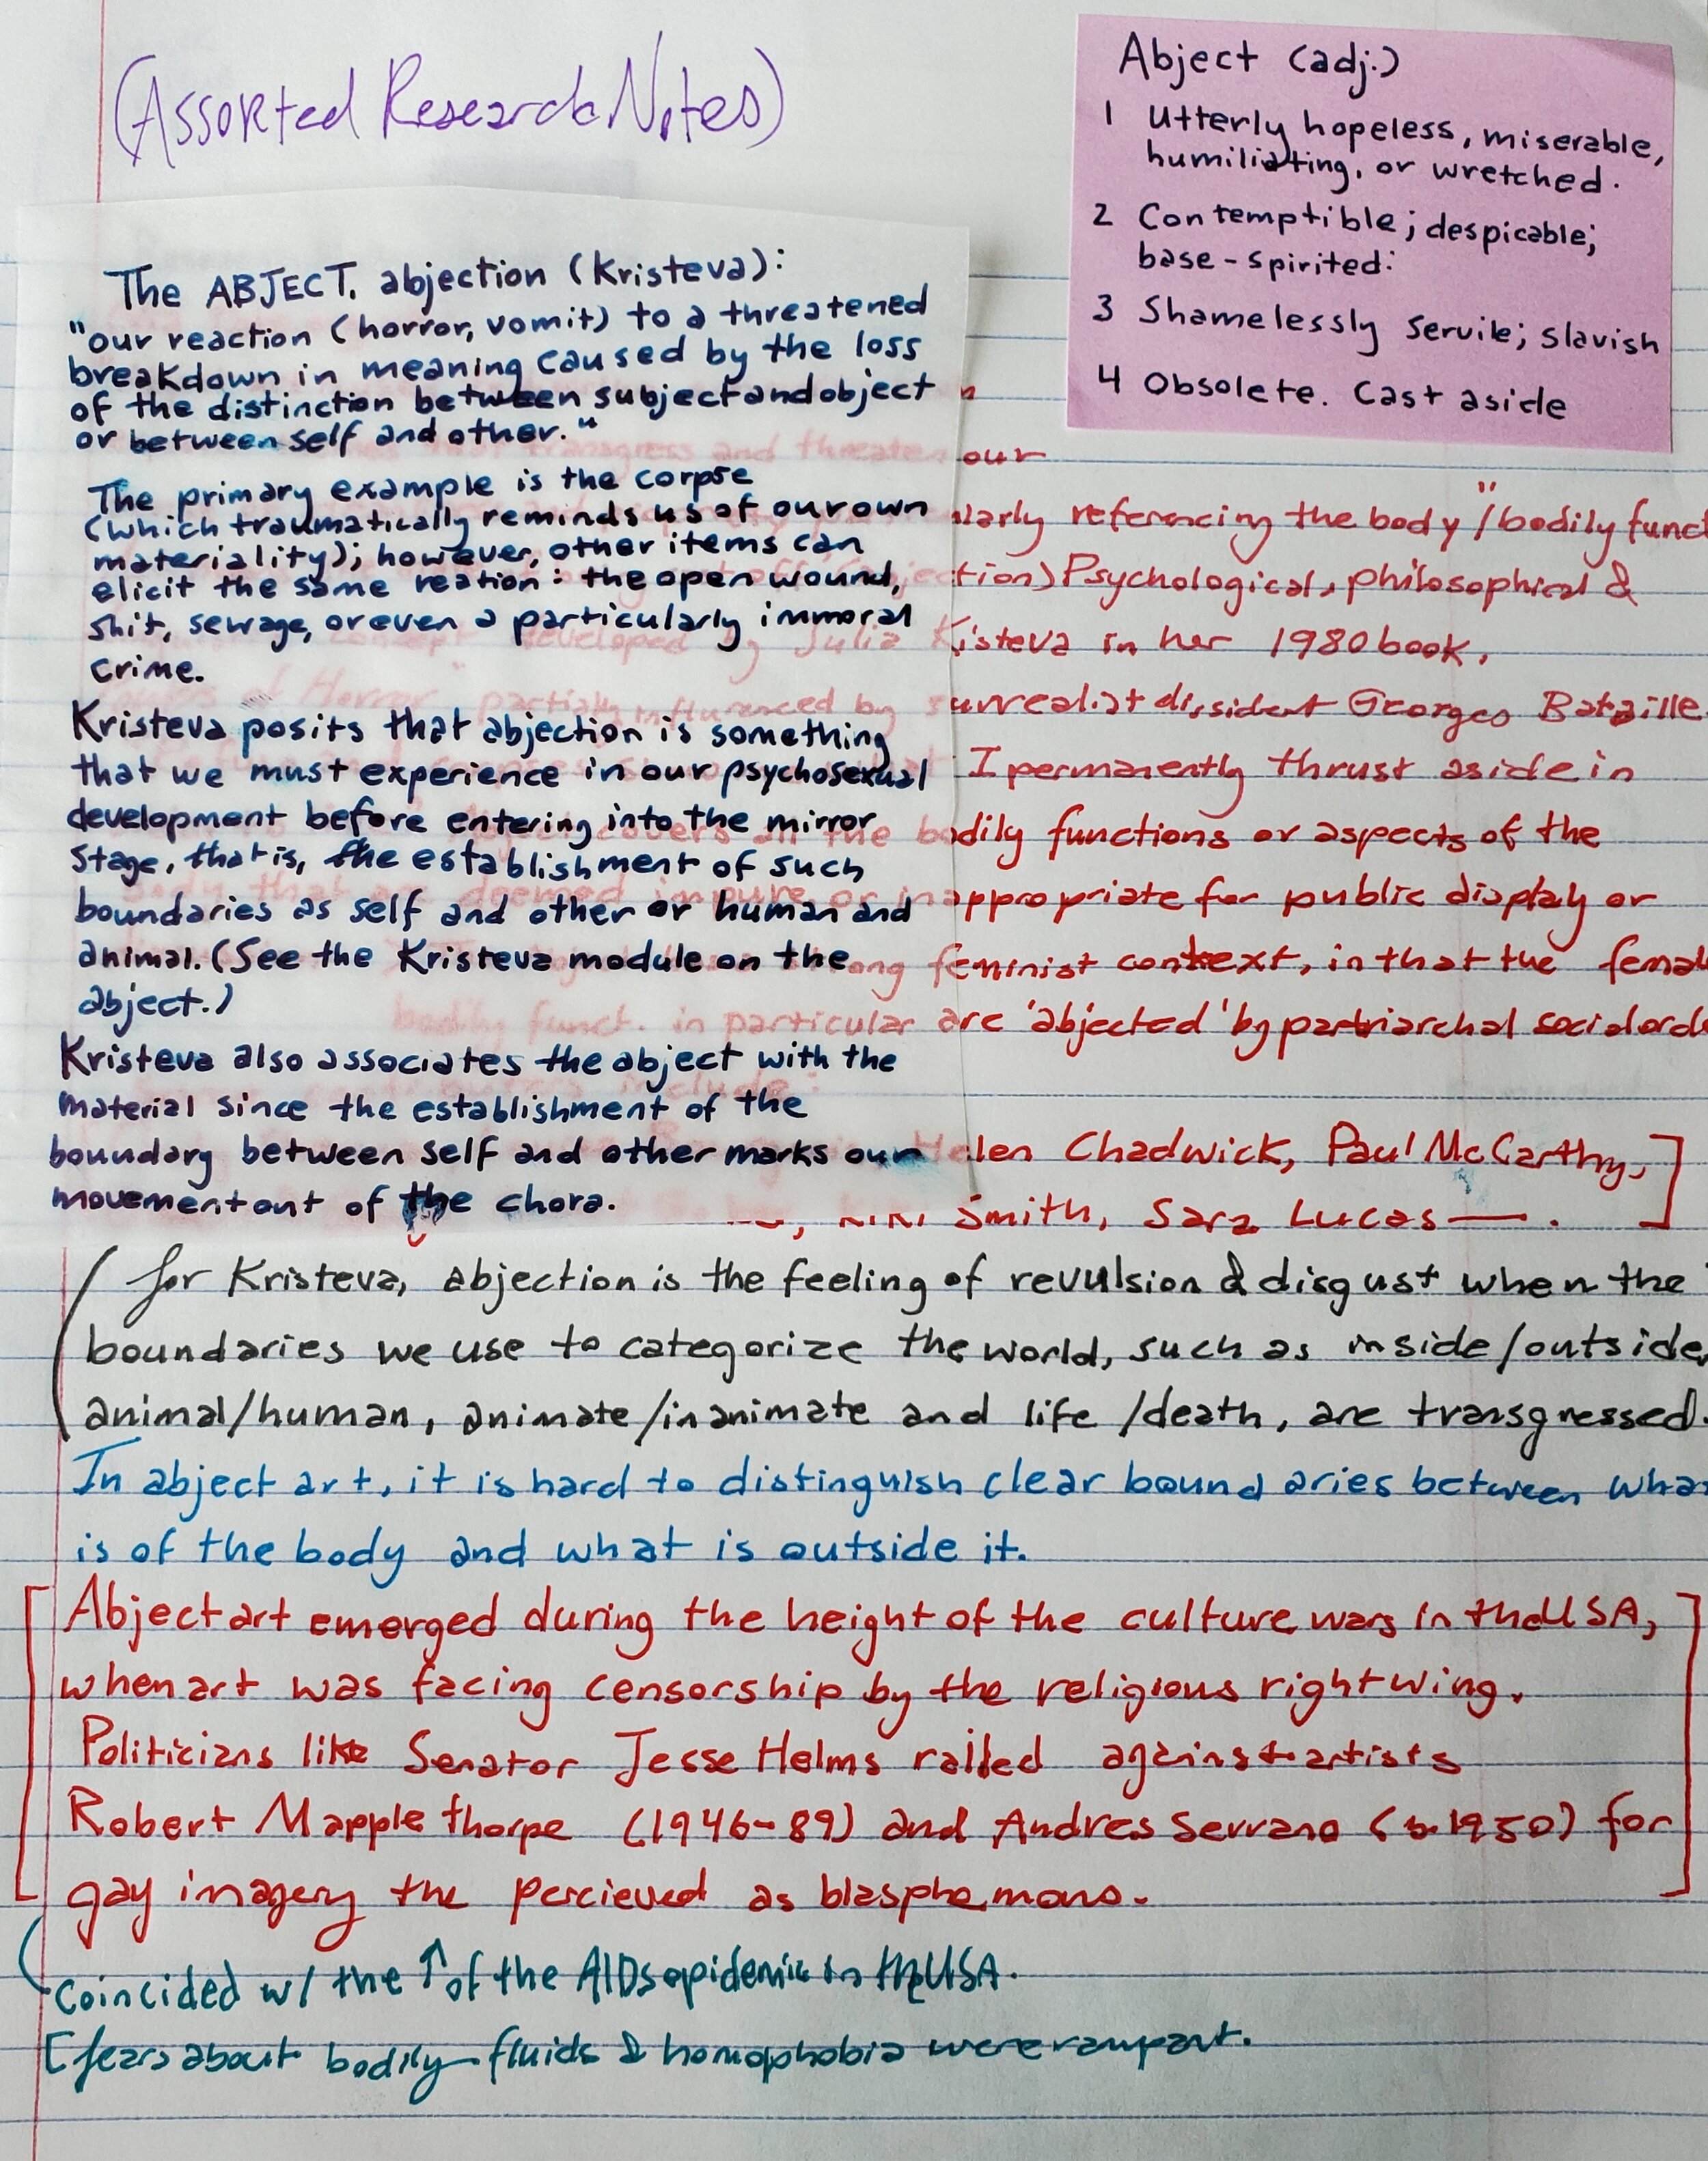 (Assorted Research Notes)
Abject (adj.)
1 Utterly hopeless, miserable,
humiliating, or wretched.
2 Contemptible; despicable;
base-spirited:
3 Shamelessly servile; slavish
4 Obsolete. Cast aside
The ABJECT, abjection (Kristeva):
"our reaction (horror, vomit) to a threatened
breakdown in meaning caused by the loss
of the distinction between subject and object
or between self and other."
The primary example is the corpse
(which traumatically reminds us of our own
materiality); however, other items can
elicit the same reation: the open wound,
shit, sewage, or even a particularly immoral
crime.
Kristeva posits that abjection is something
that we must experience in our psychosexual
development before entering into the mirror
stage, that is, the establishment of such
boundaries as self and other or human and
animal. (See the Kristeva module on the
abject.)
Kristeva also associates the abject with the
material since the establishment of the
boundary between self and other marks our
movement out of the chora.
transgress and threaten our
larly referencing the body"/bodily funct
ction) Psychological, philosophical &
concept developed by Julia Kristeva in her 1980 book,
of Horror" partially influenced by surrealist dissident Georges Bataille
I permanently thrust aside in
covers all the bodily functions or aspects of the
body that are deemed impure or inappropriate for public display or
ong feminist context, in that the femal
bodily funct. in particular are 'abjected' by partriarchal social ord
include:
Helen Chadwick, Paul McCarthy,
Kiki Smith, Sara Lucas —.]
(for Kristeva, abjection is the feeling of revulsion & disgust when the
boundaries we use to categorize the world, such as inside/outside,
animal/human, animate/inanimate and life/death, are transgressed.
In abject art, it is hard to distinguish clear boundaries between wha
is of the body and what is outside it.
[Abject art emerged during the height of the culture wars in the USA,
when art was facing censorship by the religious right wing.
Politicians like Senator Jesse Helms railed against artists
Robert Mapplethorpe (1946-89) and Andres Serrano (b.1950) for
gay imagery the percieved as blasphemous.]
Coincided w/ the ↑ of the AIDs epidemic in the USA.
[fears about bodily fluids & homophobia were rampant.